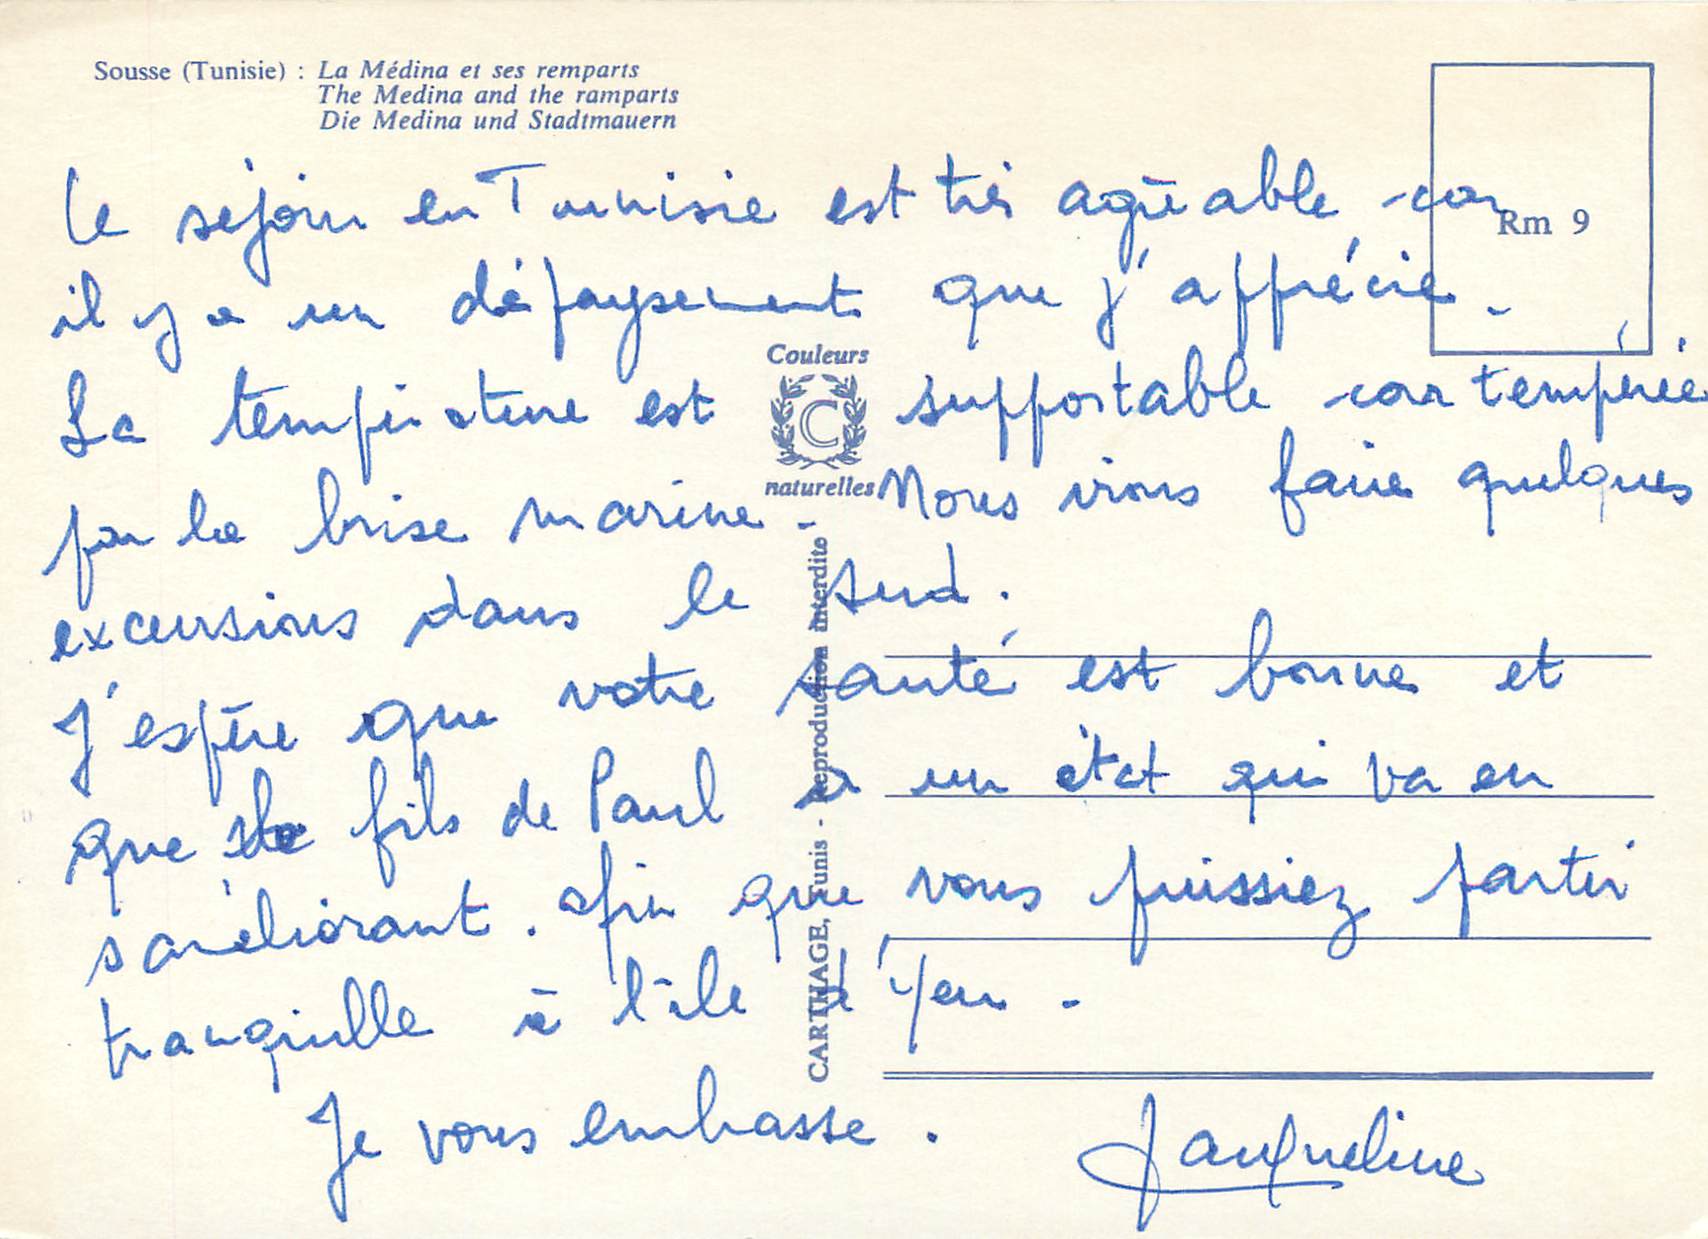 Sousse (Tunisie) : La Médina et ses remparts
The Medina and the ramparts
Die Medina und Stadtmauern
Rm 9
Le séjour en Tunisie est très agréable car
il y a un dépaysement que j'apprécie.
La température est supportable car tempérée
par la brise marine. Nous irons faire quelques
excursions dans le Sud.
J'espère que votre santé est bonne et
que le fils de Paul a un état qui va en
s'améliorant. afin que vous puissiez partir
tranquille à l'île d'Yeu.
Je vous embrasse.
Jacqueline
Couleurs
C
naturelles
CARTHAGE, Tunis - Reproduction interdite